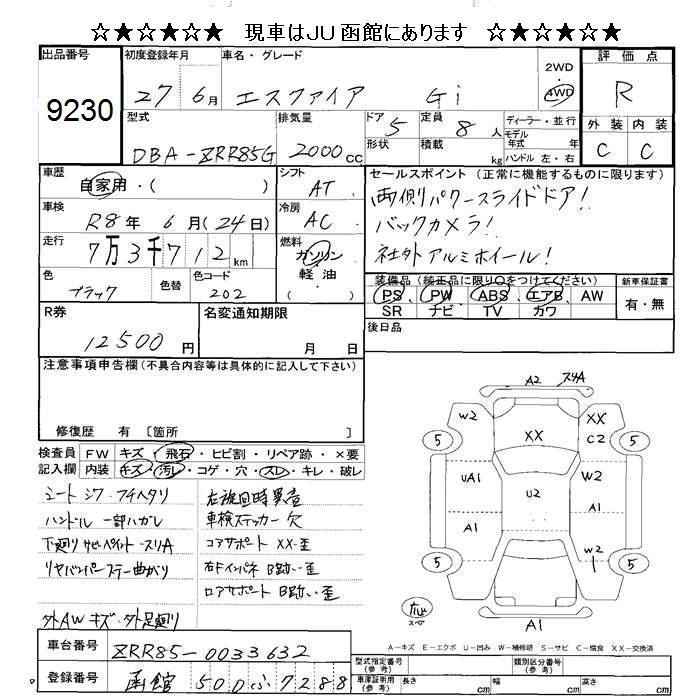 ☆★☆★☆ 現車はJU函館にあります ☆★☆★☆
出品番号 初度登録年月 車名・グレード 2WD・4WD 評価点
9230 27年 6月 エスクァイア Gi R
型式 排気量 ドア 定員 ディーラー・並行 外装 内装
DBA-ZRR85G 2000cc 5 8人 モデル年式 年 C C
形状 積載 kg ハンドル 左・右
車歴 シフト セールスポイント (正常に機能するものに限ります)
自家用・( ) AT 両側パワースライドドア!
車検 冷房 バックカメラ!
R8年 6月(24日) AC 社外アルミホイール!
走行 燃料
7万3千712km ガソリン 軽油 ( )
色 色替 色コード 装備品(純正品に限り〇をつけてください) 新車保証書
ブラック 202 PS PW ABS エアB AW 有・無
SR ナビ TV カワ
R券 名変通知期限 後日品
12500円 月 日
注意事項申告欄(不具合内容等は具体的に記入して下さい)
修復歴 有 〔箇所 〕
検査員 FW キズ・飛石・ヒビ割・リペア跡・×要
記入欄 内装 キズ・汚レ・コゲ・穴・スレ・キレ・破レ
シートシワ・フチヘタリ 左旋回時異音
ハンドル一部ハガレ 車検ステッカー欠
下廻りサビ・ペイント・スリA コアサポートXX・歪
リヤバンパーステー曲がり 右Fインパネ B跡い・歪
ロアサポート B跡い・歪
外AWキズ・外足廻り
A2 スリA
W2 XX
5 XX C2 5
UA1 W2
U2
A1 A1
W2
5 5
スペア
A1
A-キズ E-エクボ U-凹み W-補修跡 S-サビ C-腐食 XX-交換済
車台番号 ZRR85-0033632
登録番号 函館 500 ふ 7288
型式指定番号(参考) 類別区分番号(参考)
車庫証明用(参考) 長さ cm 幅 cm 高さ cm